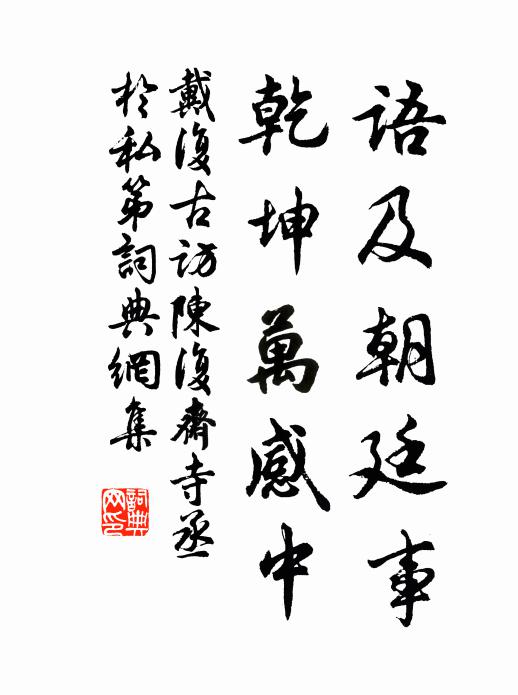 語及朝廷事
乾坤萬感中
戴復古訪陳復齋寺丞
於私第詞典網集
詞典
网印